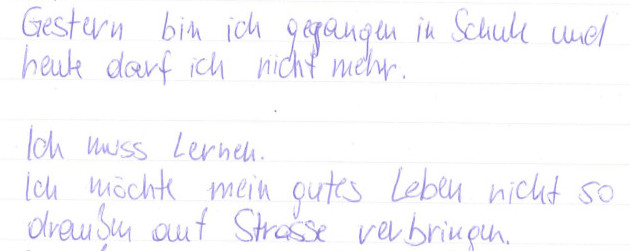 Gestern bin ich gegangen in Schule und
heute darf ich nicht mehr.
Ich muss Lernen.
Ich möchte mein gutes Leben nicht so
draußen auf Strasse verbringen.